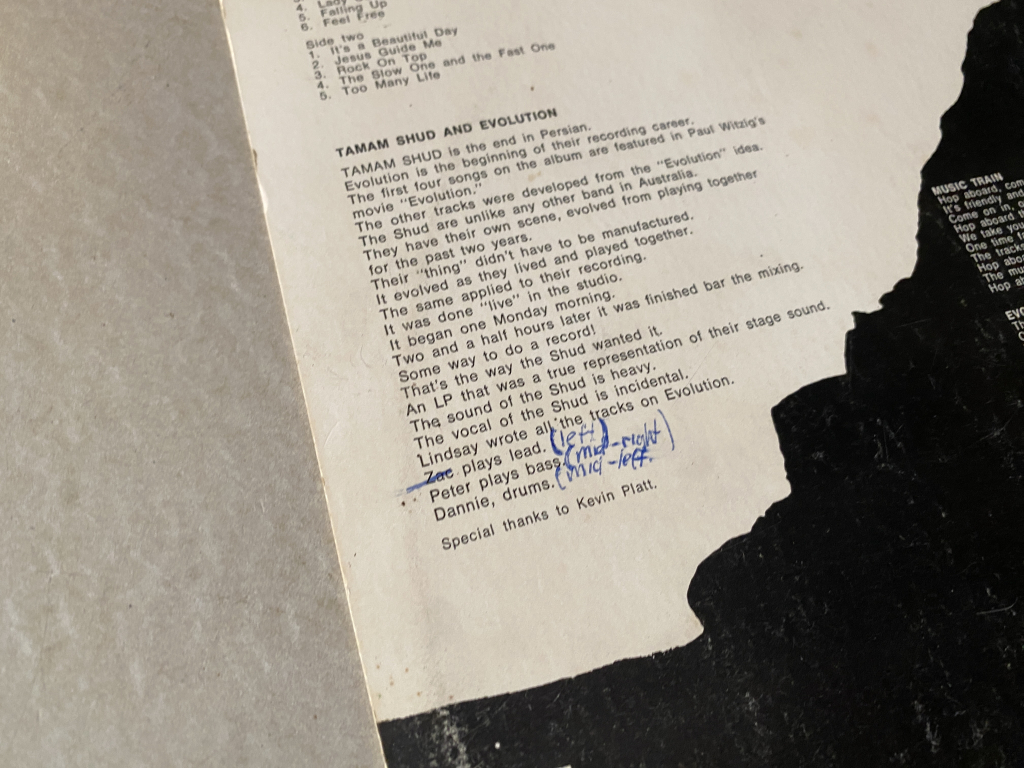 4. Lady
5. Falling Up
6. Feel Free
Side two
1. It's a Beautiful Day
2. Jesus Guide Me
3. Rock On Top
4. The Slow One and the Fast One
5. Too Many Life
TAMAM SHUD AND EVOLUTION
TAMAM SHUD is the end in Persian.
Evolution is the beginning of their recording career.
The first four songs on the album are featured in Paul Witzig's
movie "Evolution."
The other tracks were developed from the "Evolution" idea.
The Shud are unlike any other band in Australia.
They have their own scene, evolved from playing together
for the past two years.
Their "thing" didn't have to be manufactured.
It evolved as they lived and played together.
The same applied to their recording.
It was done "live" in the studio.
It began one Monday morning.
Two and a half hours later it was finished bar the mixing.
Some way to do a record!
That's the way the Shud wanted it.
An LP that was a true representation of their stage sound.
The sound of the Shud is heavy.
The vocal of the Shud is incidental.
Lindsay wrote all the tracks on Evolution.
Zac plays lead. (left)
Peter plays bass. (mid-right)
Dannie, drums. (mid-left.
Special thanks to Kevin Platt.
MUSIC TRAIN
Hop aboard, com
It's friendly and
Come on in
Hop aboard th
We take you
One time
The tracks
Hop aboa
The mu
Hop a
EVO